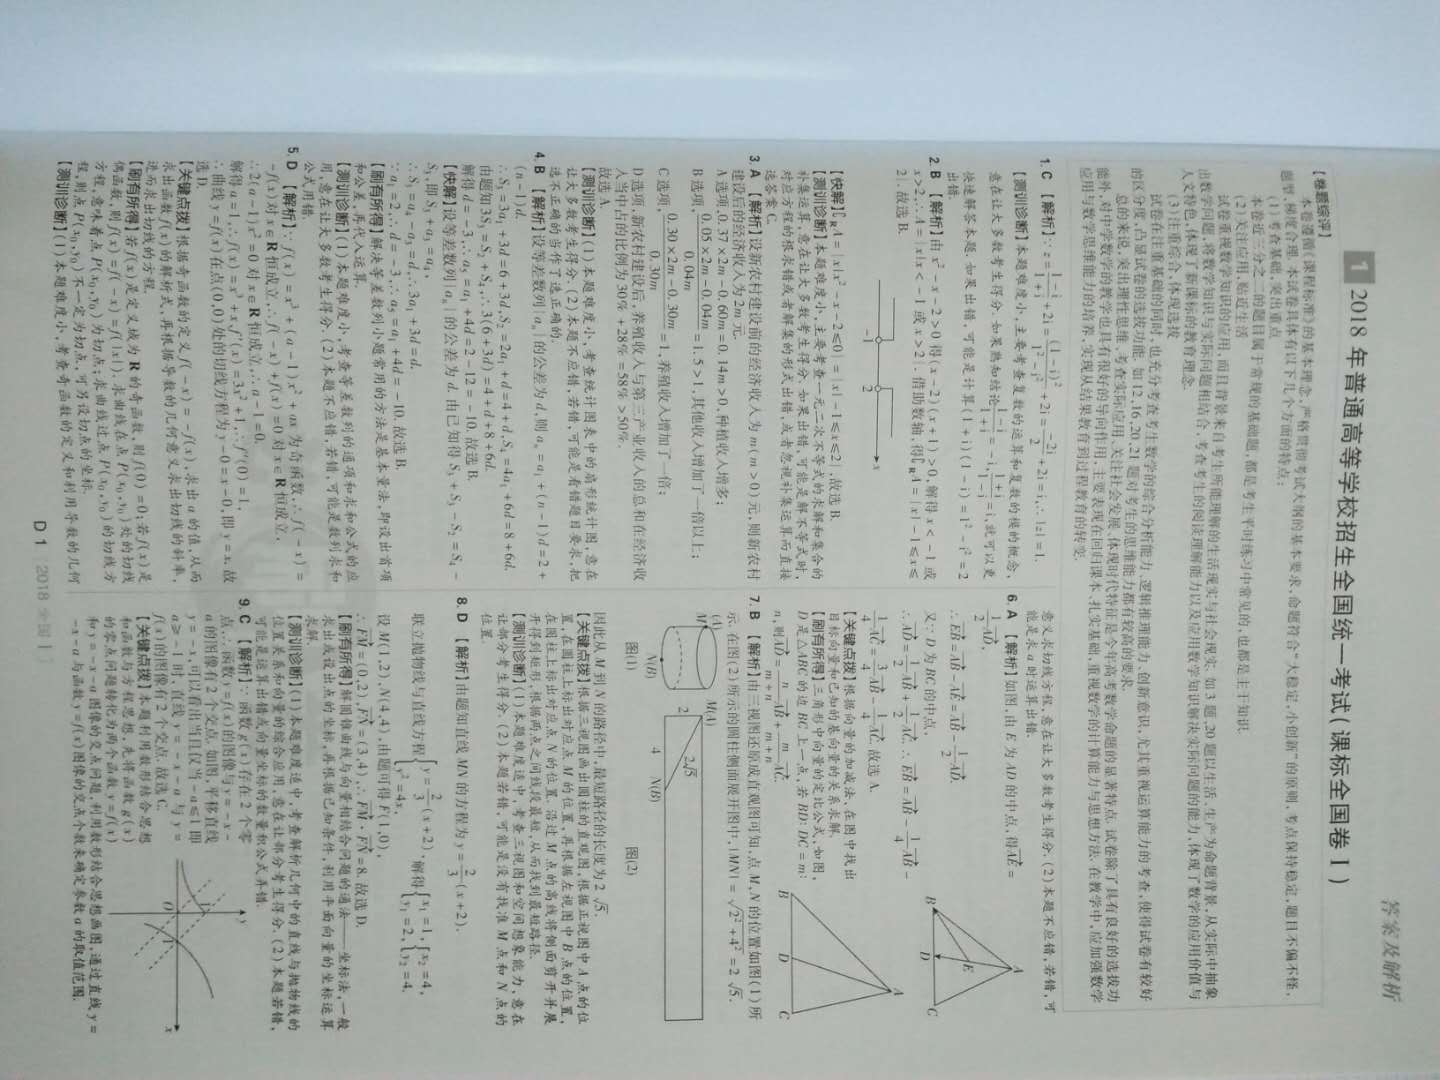 答案及解析
1 2018年普通高等学校招生全国统一考试(课标全国卷Ⅰ)
【卷题综评】
本卷遵循《课程标准》的基本理念,严格贯彻考试大纲的基本要求,命题符合“大稳定,小创新”的原则,考点保持稳定,题目不偏不怪,
题型、梯度合理.本试卷具体有以下几个方面的特点:
(1)考查基础,突出重点
本卷近三分之二的题目属于常规的基础题,都是考生平时练习中常见的,也都是主干知识.
(2)关注应用,贴近生活
试卷重视数学知识的应用,而且背景来自考生所能理解的生活现实与社会现实.如3题,20题以生活、生产为命题背景,从实际中抽象
出数学问题,将数学知识与实际问题相结合,考查考生的阅读理解能力以及应用数学知识解决实际问题的能力,体现了数学的应用价值与
人文特色,体现了新课标的教育理念.
(3)注重综合,体现选拔
试卷在注重基础的同时,也充分考查考生数学的综合分析能力、逻辑推理能力、创新意识,尤其重视运算能力的考查,使得试卷有较好
的区分度,凸显试卷的选拔功能.如12,16,20,21题对考生的思维能力都有较高的要求.
总的来说,突出理性思维,考查实际应用,关注社会发展,体现时代特征是今年高考数学命题的显著特点.试卷除了具有良好的选拔功
能外,对中学数学的教学也具有很好的导向作用,主要表现在回归课本、扎实基础,重视数学的计算能力与思想方法.在教学中,应加强数学
应用与数学思维能力的培养,实现从结果教育到过程教育的转变.
1. C 【解析】∵z=(1-i)/(1+i)+2i=(1-i)²/(1²-i²)+2i=-2i/2+2i=i,∴|z|=1.
【测训诊断】本题难度小,主要考查复数的运算和复数的模的概念,
意在让大多数考生得分.如果熟知结论(1-i)/(1+i)=-i,(1+i)/(1-i)=i,就可以更
快速解答本题.如果出错,可能是计算(1+i)(1-i)=1²-i²=2
出错.
2. B 【解析】由x²-x-2>0得(x-2)(x+1)>0,解得x<-1或
x>2,∴A={x|x<-1或x>2}.借助数轴,得∁RA={x|-1≤x≤
2}.故选B.
-1 2 x
【快解】∁RA={x|x²-x-2≤0}={x|-1≤x≤2},故选B.
【测训诊断】本题难度小,主要考查一元二次不等式的求解和集合的
补集运算,意在让大多数考生得分.如果出错,可能是解不等式时,
对应方程的根求错或者解集的形式出错,或者忽视补集运算而直接
选答案C.
3. A 【解析】设新农村建设前的经济收入为m(m>0)元,则新农村
建设后的经济收入为2m元.
A选项,0.37×2m-0.60m=0.14m>0,种植收入增多;
B选项,(0.05×2m-0.04m)/0.04m=1.5>1,其他收入增加了一倍以上;
C选项,(0.30×2m-0.30m)/0.30m=1,养殖收入增加了一倍;
D选项,新农村建设后,养殖收入与第三产业收入的总和在经济收
入当中占的比例为30%+28%=58%>50%.
故选A.
【测训诊断】(1)本题难度小,考查统计图表中的扇形统计图,意在
让大多数考生得分.(2)本题不应错,若错,可能是看错题目要求,把
选不正确的当作了选正确的.
4. B 【解析】设等差数列{aₙ}的公差为d,则aₙ=a₁+(n-1)d=2+
(n-1)d.
∴S₃=3a₁+3d=6+3d,S₂=2a₁+d=4+d,S₄=4a₁+6d=8+6d.
由题知3S₃=S₂+S₄,∴3(6+3d)=4+d+8+6d.
解得d=-3,∴a₅=a₁+4d=2-12=-10.故选B.
【快解】设等差数列{aₙ}的公差为d,由已知得S₃+S₃-S₂=S₄-
S₃,即S₃+a₃=a₄,
∴S₃=a₄-a₃=d,∴3a₁+3d=d.
∵a₁=2,∴d=-3,∴a₅=a₁+4d=-10,故选B.
【刷有所得】解决等差数列小题常用的方法是基本量法,即设出首项
和公差,再代入运算.
【测训诊断】(1)本题难度小,考查等差数列的通项和求和公式的应
用,意在让大多数考生得分.(2)本题不应错,若错,可能是数列求和
公式用错.
5. D 【解析】∵f(x)=x³+(a-1)x²+ax为奇函数,∴f(-x)=
-f(x)对x∈R恒成立,∴f(-x)+f(x)=0对x∈R恒成立,
∴2(a-1)x²=0对x∈R恒成立,∴a-1=0,
解得a=1,∴f(x)=x³+x,f′(x)=3x²+1,∴f′(0)=1,
∴曲线y=f(x)在点(0,0)处的切线方程为y-0=x-0,即y=x,故
选D.
【关键点拨】根据奇函数的定义f(-x)=-f(x),求出a的值,从而
求出函数f(x)的解析式,再根据导数的几何意义求出切线的斜率,
进而求出切线的方程.
【刷有所得】若f(x)是定义域为R的奇函数,则f(0)=0;若f(x)是
偶函数,则f(x)=f(-x)=f(|x|).求曲线在点P(x₀,y₀)处的切线
方程,意味着点P(x₀,y₀)为切点;求曲线过点P(x₀,y₀)的切线方
程,则点P(x₀,y₀)不一定为切点,可另设切点的坐标.
【测训诊断】(1)本题难度小,考查奇函数的定义和利用导数的几何
意义求切线方程,意在让大多数考生得分.(2)本题不应错,若错,可
能是求a时运算出错.
6. A 【解析】如图,由E为AD的中点,得AE=
1/2 AD.
∴EB=AB-AE=AB-1/2 AD.
又∵D为BC的中点,
∴AD=1/2 AB+1/2 AC,∴EB=AB-1/4 AB-
1/4 AC=3/4 AB-1/4 AC.故选A.
A
B
C
D
E
【关键点拨】根据向量的加减法,在图中找出
目标向量和已知的基向量的关系求解.
【刷有所得】三角形中向量的定比公式,如图,
D是△ABC的边BC上一点,若BD:DC=m:
n,则AD=n/(m+n) AB+m/(m+n) AC.
A
B
D
C
7. B 【解析】由三视图还原成直观图可知,点M,N的位置如图(1)所
示,在图(2)所示的圆柱侧面展开图中,|MN|=√(2²+4²)=2√5.
(A)
M
N(B)
图(1)
M(A)
2
2√5
4
N(B)
图(2)
因此从M到N的路径中,最短路径的长度为2√5.
【关键点拨】根据三视图画出圆柱的直观图,根据正视图中A点的位
置,在圆柱上标出对应点M的位置,再根据左视图中B点的位置,
在圆柱上标出对应点N的位置.沿过M点的高线将侧面剪开并展
开得到矩形,根据两点之间线段最短,从而找到最短路径.
【测训诊断】(1)本题难度适中,考查三视图和空间想象能力,意在
让部分考生得分.(2)本题若错,可能是没有找准M点和N点的
位置.
8. D 【解析】由题知直线MN的方程为y=2/3(x+2).
联立抛物线与直线方程{y=2/3(x+2), y²=4x,解得{x₁=1, y₁=2,{x₂=4, y₂=4,
设M(1,2),N(4,4).由题可得F(1,0),
∴FM=(0,2),FN=(3,4),∴FM·FN=8.故选D.
【刷有所得】解圆锥曲线与向量相结合问题的通法——坐标法,一般
求出或设出点的坐标,再根据已知条件,利用平面向量的坐标运算
求解.
【测训诊断】(1)本题难度适中,考查解析几何中的直线与抛物线的
位置关系和向量的综合应用,意在让部分考生得分.(2)本题若错,
可能是运算出错或向量坐标的数量积公式弄错.
9. C 【解析】∵函数g(x)存在2个零
点,∴函数y=f(x)的图像与y=-x-
a的图像有2个交点.如图,平移直线
y=-x,可以看出当且仅当-a≤1,即
a≥-1时,直线y=-x-a与y=
f(x)的图像有2个交点.故选C.
y
1
O
1
x
【关键点拨】本题利用数形结合思想
和函数与方程思想,先将函数g(x)
的零点问题转化为两个函数y=f(x)
和y=-x-a图像的交点问题,利用数形结合思想画图,通过直线y=
-x-a与函数y=f(x)图像的交点个数来确定参数a的取值范围.
D1 2018全国Ⅰ